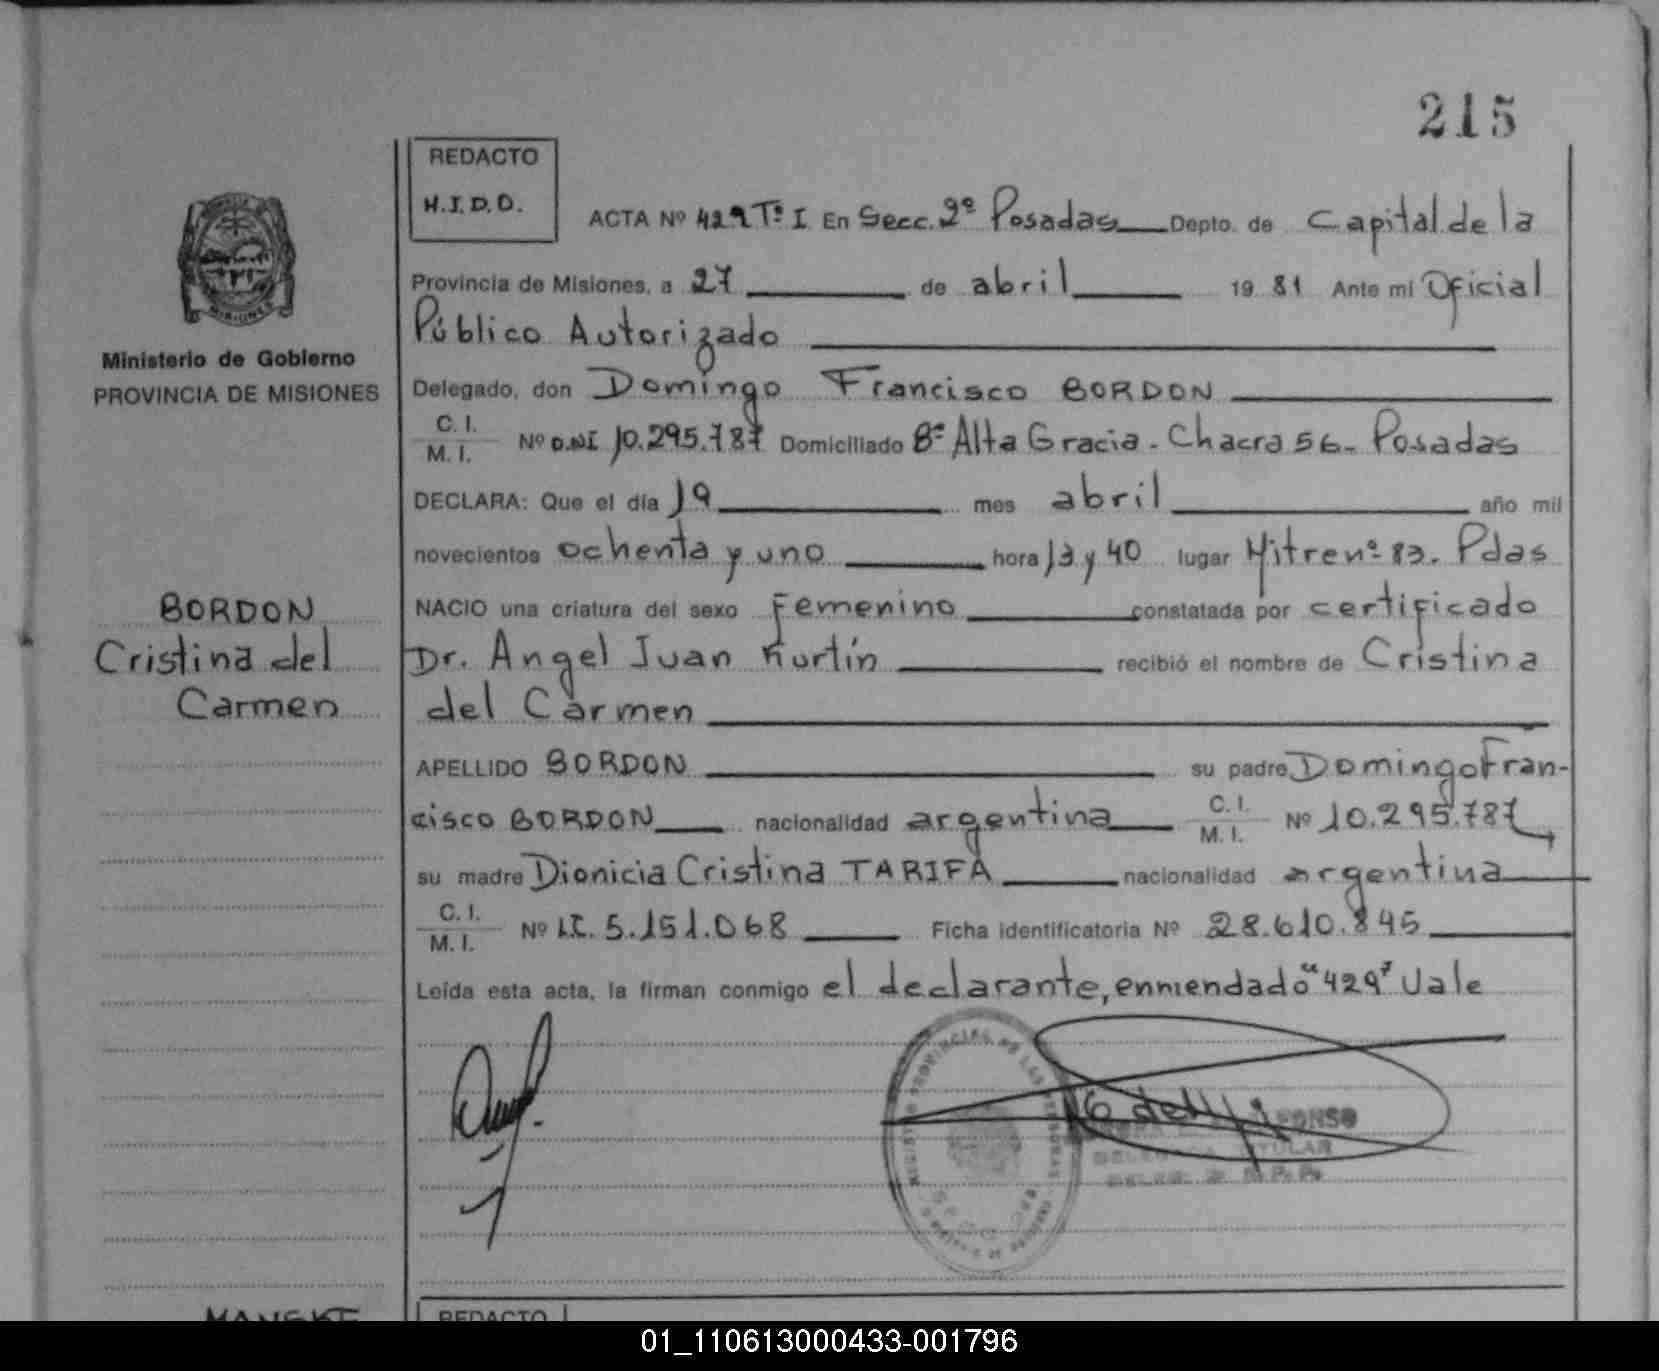 215
REDACTO
H.I.D.O.
ACTA Nº 429 Tº I En Secc. 2º Posadas Depto. de Capital de la
Provincia de Misiones, a 27 de abril 19 81 Ante mi Oficial
Público Autorizado
Ministerio de Gobierno
PROVINCIA DE MISIONES
Delegado, don Domingo Francisco BORDON
C. I.
M. I. Nº D.N.I 10.295.787 Domiciliado Bº Alta Gracia - Chacra 56 - Posadas
DECLARA: Que el día 19 mes abril año mil
novecientos ochenta y uno hora 13 y 40 lugar Mitre nº 83. Pdas
NACIO una criatura del sexo femenino constatada por certificado
Dr. Angel Juan Kurtín recibió el nombre de Cristina
del Carmen
BORDON
Cristina del
Carmen
APELLIDO BORDON su padre Domingo Fran-
cisco BORDON nacionalidad argentina C. I.
M. I. Nº 10.295.787
su madre Dionicia Cristina TARIFA nacionalidad argentina
C. I.
M. I. Nº L.C. 5.151.068 Ficha identificatoria Nº 28.610.845
Leída esta acta, la firman conmigo el declarante, enmendado "429" Vale
TITULAR
REDACTO
01_110613000433-001796